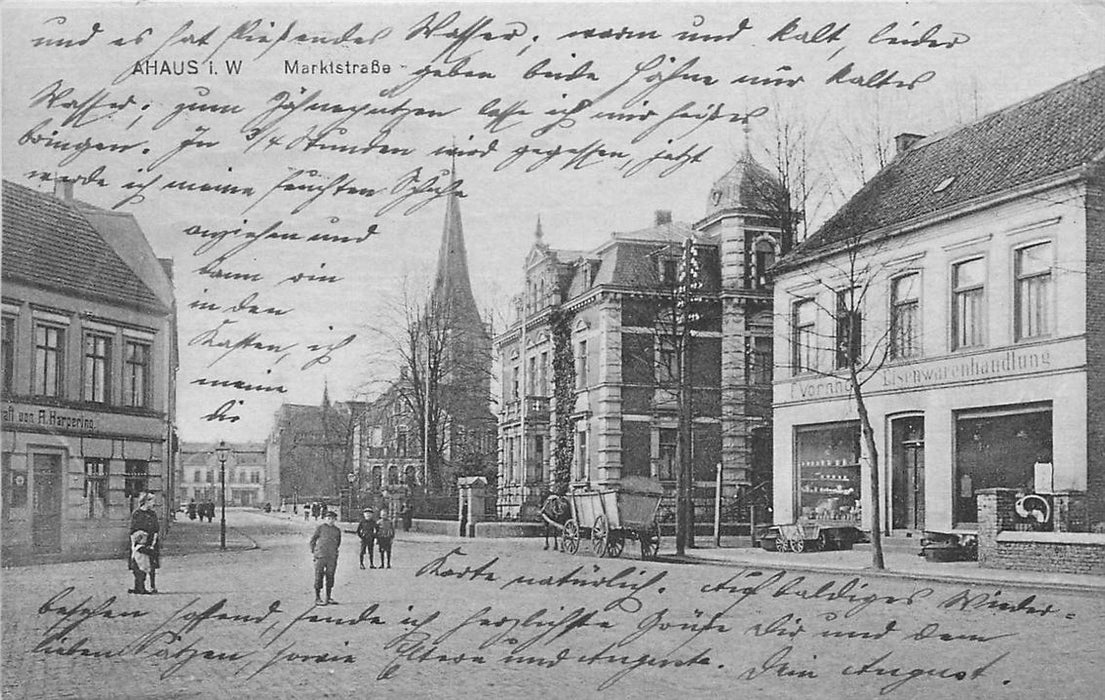 und es hat fließendes Wasser; warm und kalt, leider
AHAUS i. W Marktstraße
geben beide Hähne nur kaltes
Wasser; zum Zähneputzen lasse ich mir heißes
bringen. In 3/4 Stunden wird gegessen, jetzt
werde ich meine feuchten Schuhe
ausziehen und
dann ein
in den
Kasten, ich
meine
die
Vorsing Eisenwarenhandlung
aft von A. Harpering
Karte natürlich. Auf baldiges Wieder-
sehen hoffend, sende ich herzlichste Grüße Dir und dem
lieben sowie Eltern und Auguste. Dein August.